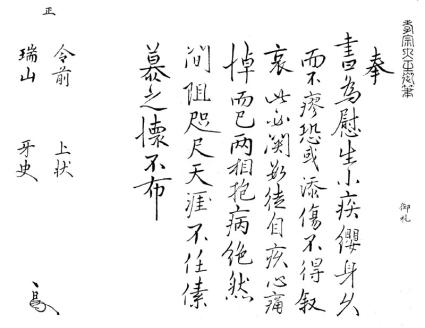 孝宗大王御筆
御札
奉
書爲慰生小疾纓身久
而不瘳恐或添傷不得叙
哀此心徒自疚心痛
悼而已兩相抱病絶然
間阻咫尺天涯不任傃
慕之懷不布
令前 上状
瑞山 牙史
正